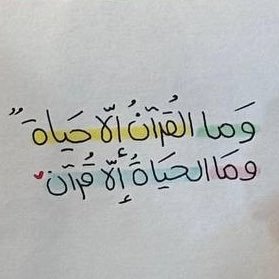 وَما القُرآنُ ألّا حَياة"
ومَا الحَياةُ إلّا قُرآن